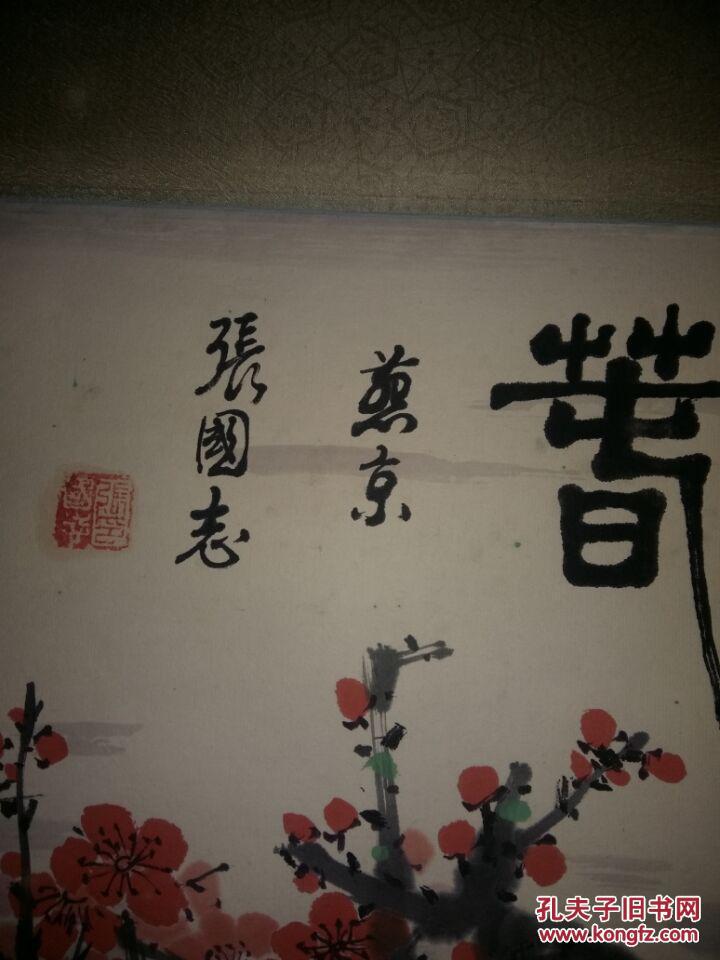 萅
燕京
張國志
孔夫子旧书网
www.kongfz.com